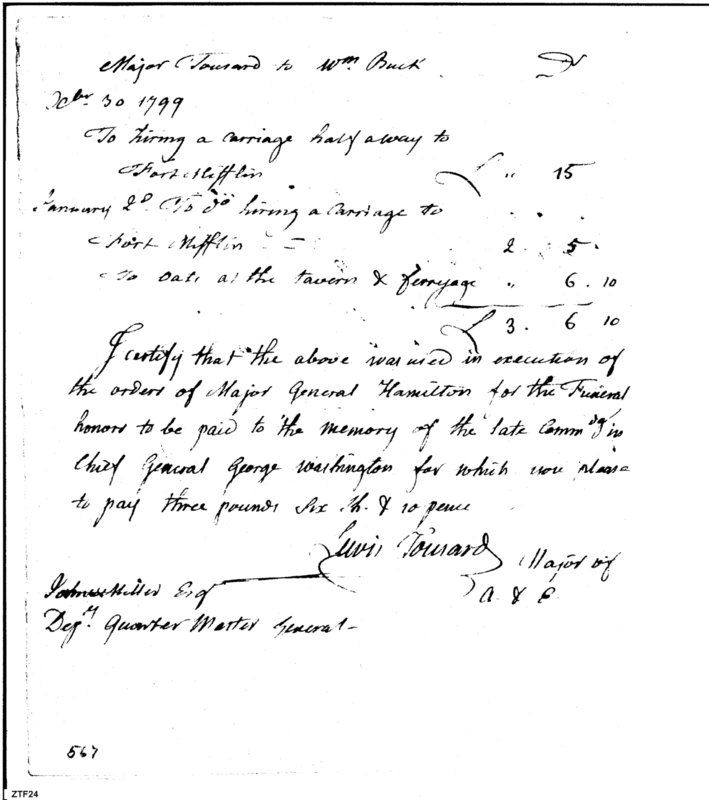 Major Tousard to Wm Buck Dr
Xbr 30 1799
To hiring a carriage half a way to
Fort Mifflin £ " 15
January 2d. To do hiring a carriage to
Fort Mifflin - - 2. 5.
To Oats at the tavern & ferryage " 6. 10
£ 3. 6 10
I certify that the above was used in execution of
the orders of Major General Hamilton for the Funeral
honors to be paid to the memory of the late Commdg in
Chief General George Washington for which you please
to pay three pounds Six Sh. & 10 pence
Lewis Tousard Major of
A & E
Miller Esq
Depy. Quarter Master General -
567
ZTF24